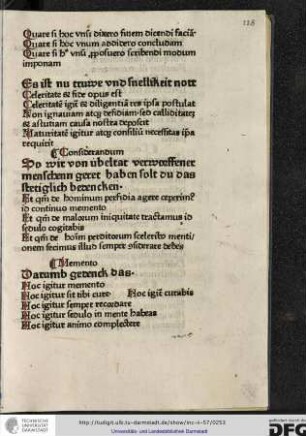 128
Quare si hoc vnū dixero finem dicendi faciā
Quare si hoc vnum addidero concludam
Quare si hᵒ vnū ꝓposuero scribendi modum
imponam
Es ist nu truwe vnd snellikeit nott
Celeritate ⁊ fide opus est
Celeritatē igit̄ ⁊ diligentiā res ip̄a postulat
Non ignauiam atqꝫ desidiam sed calliditatē
⁊ astutiam causa nostra deposcit
Maturitatē igitur atqꝫ consiliū necessitas ip̄a
requirit
¶ Considerandum
So wir von übeltat verworffener
menschenn geret haben solt du das
stetiglich betencken.
Et qm̄ de hominum perfidia agere ceperim⁹
id continuo memento
Et qm̄ de malorum iniquitate tractamus id
sedulo cogitabis
Et qm̄ de hoīm perditorum scelerib⁹ menti/
onem fecimus illud semper ꝯsiderare debes
¶ Memento
Darumb getenck das.
Hoc igitur memento
Hoc igitur sit tibi cure Hoc igit̄ curabis
Hoc igitur semper recordare
Hoc igitur sedulo in mente habeas
Hoc igitur animo complectere
TECHNISCHE
UNIVERSITÄT
DARMSTADT
http://tudigit.ulb.tu-darmstadt.de/show/inc-ii-57/0253
Universitäts- und Landesbibliothek Darmstadt
DFG